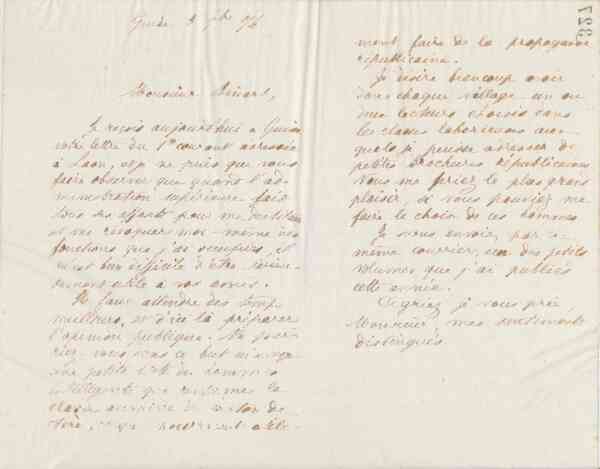 Guise 3 9bre 76
Monsieur
Je reçois aujourd'hui à Guise
votre lettre du 1er courant adressée
à Laon, et je ne puis que vous
faire observer que quand l'ad-
ministration supérieure fait
tous ses efforts pour me
et me révoquer moi-même des
fonctions que j'ai occupées, il
m'est bien difficile d'être
utile à vos
Il faut attendre des temps
meilleurs, et d'ici là préparer
l'opinion publique. Ne pour-
riez-vous dans ce but
une petite liste des hommes
intelligents que renferme la
classe ouvrière du canton de
et qui pourraient utile-
ment faire de la propagande
républicaine.
Je désire beaucoup avoir
dans chaque village un ou
deux lecteurs choisis dans
les classes laborieuses aux-
quels je puisse adresser de
petites brochures républicaines
Vous me feriez le plus grand
plaisir, si vous pouviez me
faire le choix de ces hommes
Je vous envoie, par ce
même courrier, un des petits
volumes que j'ai publiés
cette année.
Agréez je vous prie
Monsieur, mes sentiments
distingués